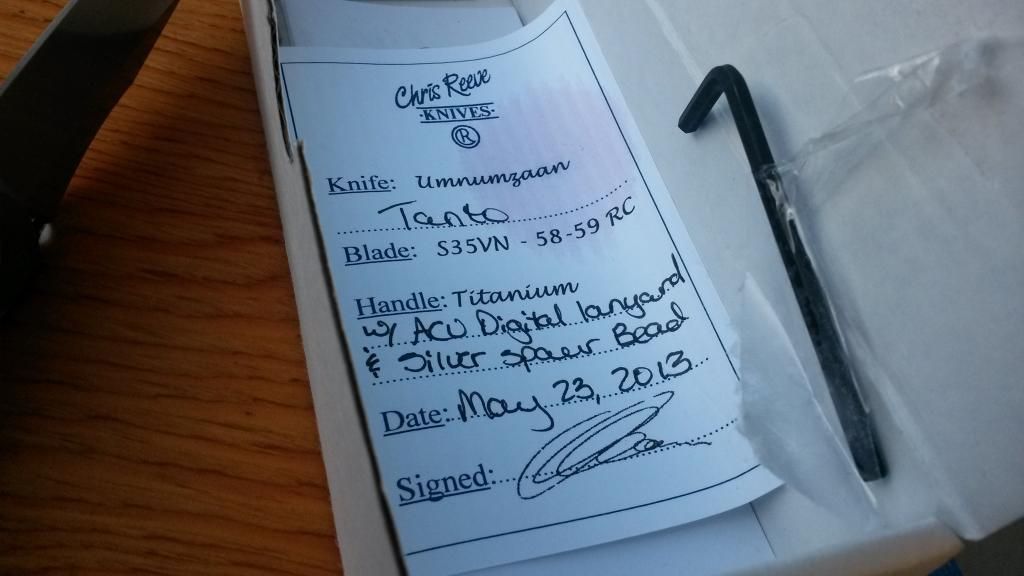 Chris Reeve
·KNIVES·
®
Knife: Umnumzaan
Tanto
Blade: S35VN - 58-59 RC
Handle: Titanium
w/ ACU Digital lanyard
& Silver spacer Bead
Date: May 23, 2013
Signed: